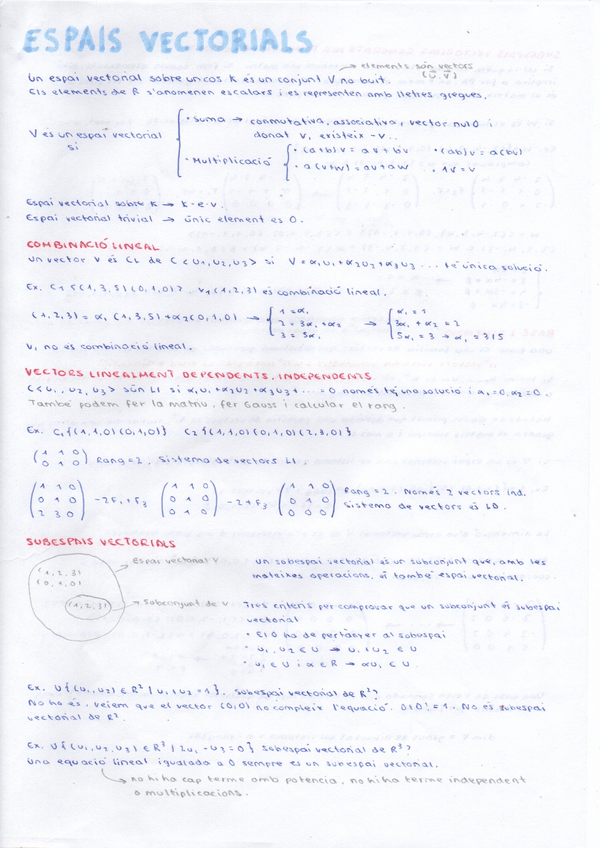 ESPAIS VECTORIALS
elements són vectors
(u, v)
Un espai vectorial sobre un cos K és un conjunt V no buit.
Els elements de R s'anomenen escalars i es representen amb lletres gregues.
V és un espai vectorial
si
· Suma → conmutativa, associativa, vector nul 0 i
donat v, existeix -v..
· Multiplicació
· (a+b)v = av + bv · (ab)v = a(bv)
· a(v+w) = av + aw · 1v = v
Espai vectorial sobre K → K-e-v.
Espai vectorial trivial → únic element es 0.
COMBINACIÓ LINEAL
Un vector V és CL de C <U1, U2, U3> si V = α1U1 + α2U2 + α3U3 ... té única solució.
Ex. C1 {(1,3,5) (0,1,0)} v1 (1,2,3) és combinació lineal.
(1,2,3) = α1 (1,3,5) + α2 (0,1,0) → { 1 = α1 → { α1 = 1
2 = 3α1 + α2 3α1 + α2 = 2
3 = 5α1 5α1 = 3 → α1 = 3/5
v1 no es combinació lineal.
VECTORS LINEALMENT DEPENDENTS, INDEPENDENTS
C <U1, U2, U3> són LI si α1U1 + α2U2 + α3U3 + ... = 0 només té una solució i α1 = 0, α2 = 0..
També podem fer la matriu, fer Gauss i calcular el rang.
Ex. C1 {(1,1,0) (0,1,0)} C2 {(1,1,0) (0,1,0) (2,3,0)}
(1 1 0) Rang = 2. Sistema de vectors LI
(0 1 0)
(1 1 0) (1 1 0) (1 1 0) Rang = 2. Només 2 vectors ind.
(0 1 0) -2F1+F3 (0 1 0) -2+F3 (0 1 0) Sistema de vectors és LD.
(2 3 0) (0 1 0) (0 0 0)
SUBESPAIS VECTORIALS
Espai vectorial V
(1,2,3)
(0,1,0)
(1,2,3)
Subconjunt de V.
Un subespai vectorial és un subconjunt que, amb les
mateixes operacions, és també espai vectorial.
Tres criteris per comprovar que un subconjunt és subespai
vectorial
· El 0 ha de pertànyer al subespai
· u1, u2 ∈ U → u1 + u2 ∈ U
· u1 ∈ U i α ∈ R → αu1 ∈ U.
Ex. U {(u1, u2) ∈ R² | u1 + u2 = 1}. Subespai vectorial de R²?
No ho és, veiem que el vector (0,0) no compleix l'equació. 0+0 != 1. No és subespai
vectorial de R².
Ex. U {(u1, u2, u3) ∈ R³ | 2u1 - u3 = 0} Subespai vectorial de R³?
Una equació lineal igualada a 0 sempre és un subespai vectorial.
no hi ha cap terme amb potencia, no hi ha terme independent
o multiplicacions.